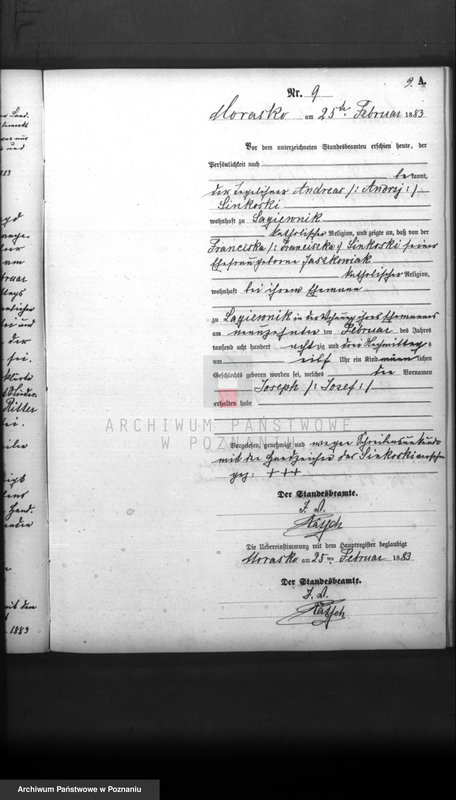 9. A.
Nr. 9
Morasko am 25ten Februar 1883
Vor dem unterzeichneten Standesbeamten erschien heute, der
Persönlichkeit nach
be kannt,
der Tagelöhner Andreas /: Andrzej :/
Sinkoski
wohnhaft zu Łagiewnik
katholischer Religion, und zeigte an, daß von der
Franciska /: Franciszka :/ Sinkoski seiner
Ehefrau geborene Jaszkowiak
katholischer Religion,
wohnhaft bei ihrem Ehemann
zu Łagiewnik in der Wohnung ihres Ehemannes
am neunzehnten ten Februar des Jahres
tausend acht hundert achtzig und drei Nachmittags
um eilf Uhr ein Kind männlichen
Geschlechts geboren worden sei, welches die Vornamen
Joseph /: Josef :/
erhalten habe
ARCHIWUM PAŃSTWOWE
W POZNANIU
Vorgelesen, genehmigt und wegen Schreibensunkunde
mit die Handzeichen des Sinkoski versehen
gez: + + +
Der Standesbeamte.
J. V.
Die Uebereinstimmung mit dem Hauptregister beglaubigt
Morasko am 25ten Februar 1883
Der Standesbeamte.
J. V.
1883
Archiwum Państwowe w Poznaniu